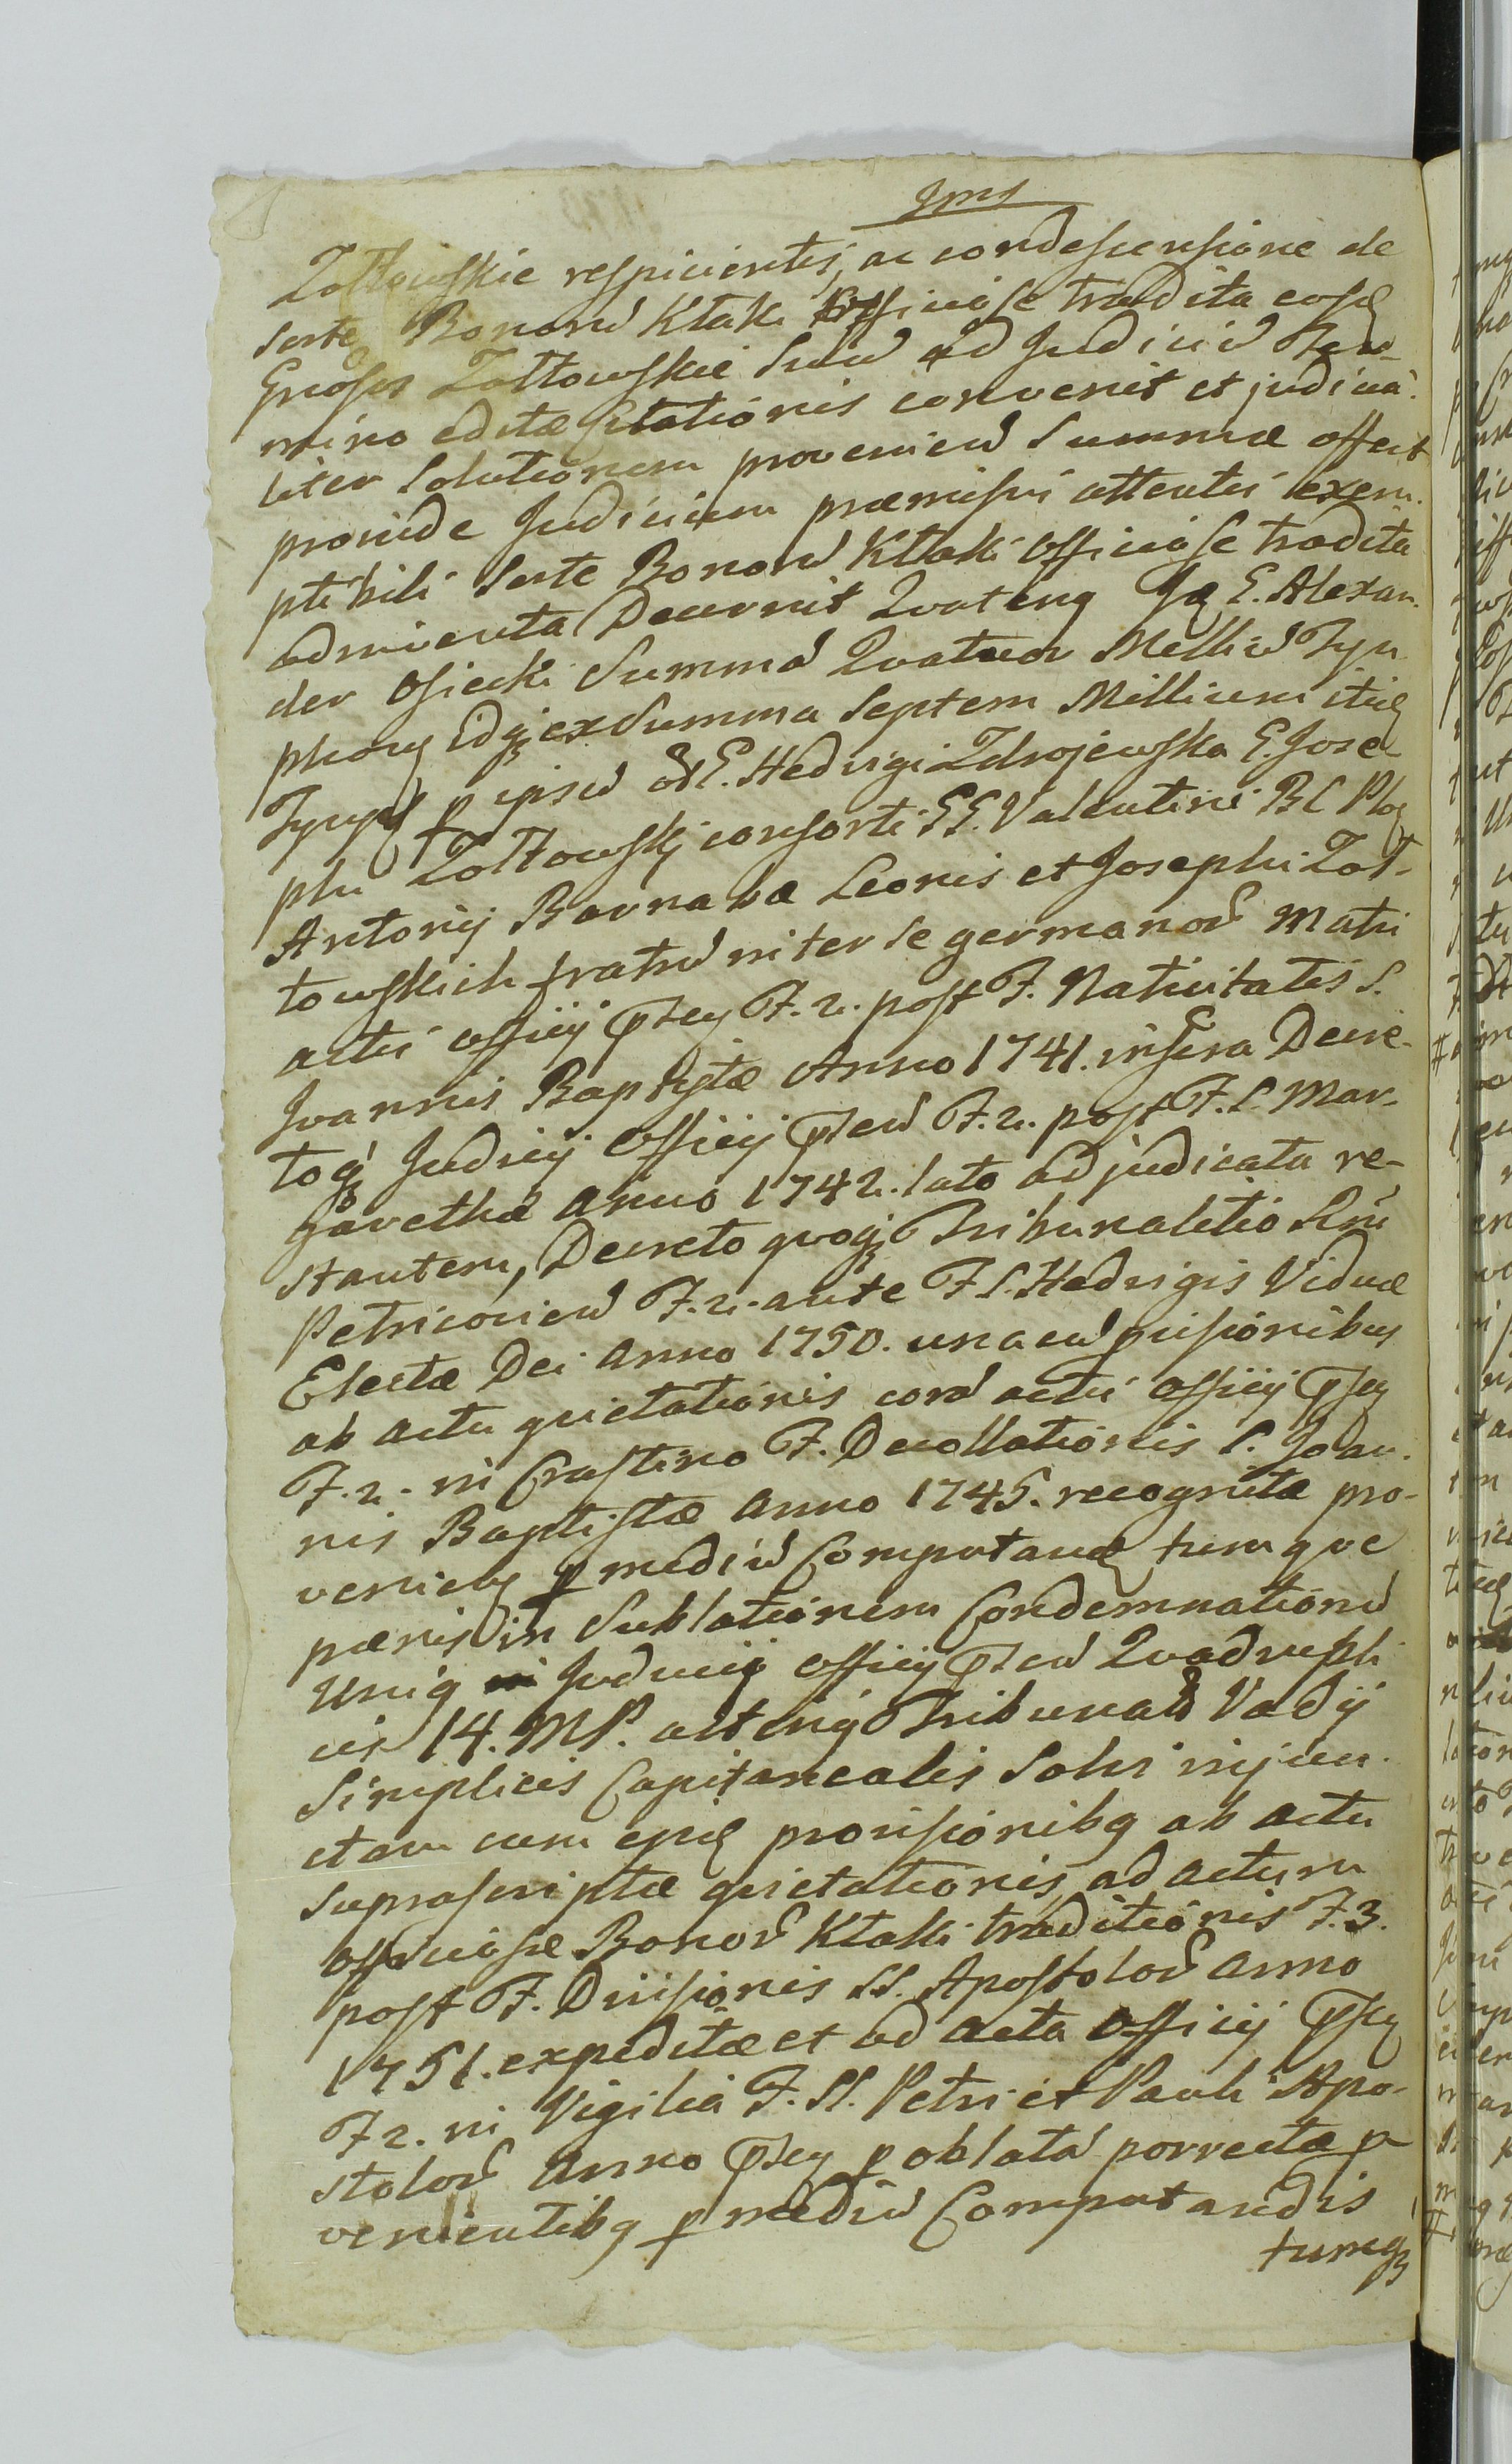 Ipms
Zołtowskie respicientis, ac condescensione de
sorte Bonorũ Kłaki officiose tradita eosq
Gnosos Zołtowskie Suũ ad Judiciũ Ter-
mino editæ Citationis convenit et judicia-
liter Solutionem proveniend Summæ offert
proinde Judicium præmissis attentis exem-
ptibili Sorte Bonorũ Kłaki officiose tradita
admienta Decernit Quateng G. Alexan-
der Osiecki Summã Quatuor Milliũ Tyn
phorũ idq ex Summa Septem Millium itidẽ
Tynph p ipsũ G. Hedvigi Zdrojewska G. Jose
phi Zołtowskj consorti GG. Valentini BC Ploc
Antonij Barnabæ Leonis et Josephi Zoł-
towskich fratrũ inter se germanorũ Matri
actis officij ptis F. 2. post F. Nativitatis S.
Joannis Baptystæ Anno 1741. inscra Decre-
toq Judicij Officij ptis F. 2. post F. S. Mar-
garethæ Anno 1742. lato adjudicata re-
stantem, Decreto quoq Tribunalitio Rni
Petricovien F. 2. ante F S. Hedvigis Viduæ
Electæ Dei Anno 1750. una cũ pvisionibus
ab actu quietationis corã actis officij ptis
F. 2. in Crastino F. Decollationis S. Joan-
nis Baptistæ Anno 1745. recognitæ pro-
venien p mediũ Computand tumque
pænis in Sublationem Condemnationũ
Unig Judicij officij ptis Quadrupli
cis 14. MP. alterig Tribunal Vadij
Simplicis Capitanealis Solvi injun-
ctam cum ejusd provisionibq ab actu
suprascriptæ quietationis ad actum
officiosæ Bonorũ Kłaki traditionis F. 3.
post F. Divisionis SS. Apostolorũ Anno
1751. expeditæ et ad acta Officij ptis
F 2. in Vigilia F. SS. Petri et Pauli Apo-
stolorũ Anno ptis p oblatã porrectæ p
venientibq p mediũ Computandis
tumq